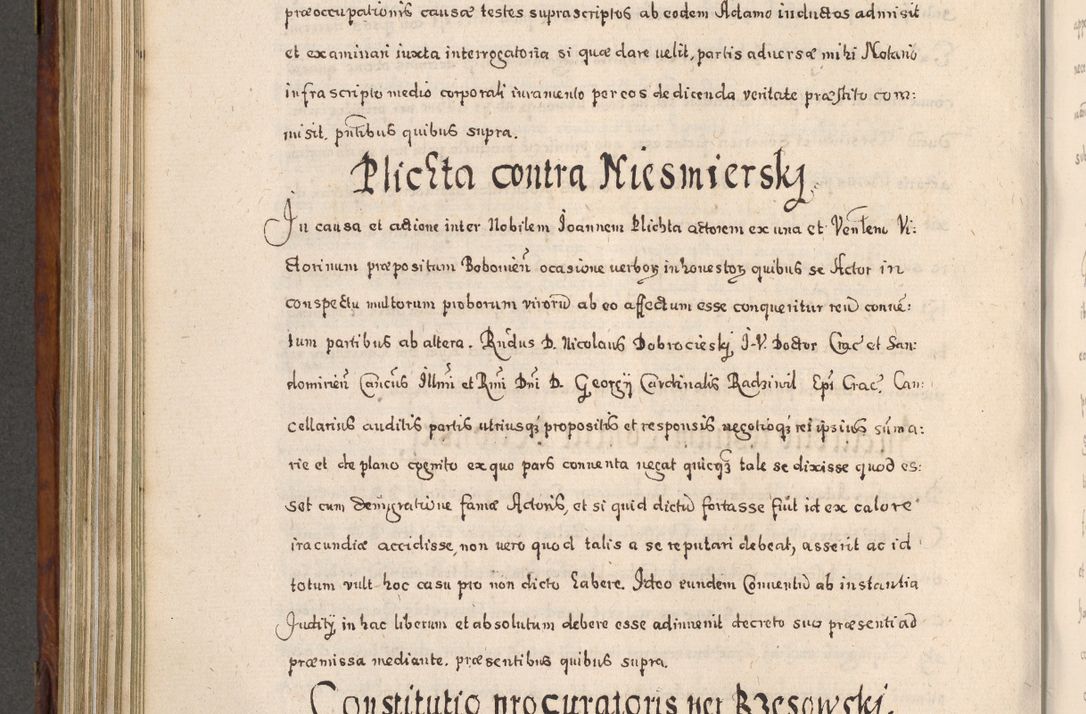 præoccupationis causæ testes suprascriptos ab eodem Adamo inductos admisit
et examinari iuxta interrogatoria si quæ dare uelit, partis aduersæ mihi Notario
infrascripto medio corporali iuramento per eos de dicenda veritate præstito com:
misit. pntibus quibus supra.
Plichta contra Niesmiersky.
In causa et actione inter Nobilem Joannem Plichta actorem ex una et Ventem Vi:
ctorinum præpositum Bobonien ocasione verborz inhonestorz quibus se Actor in
conspectu multorum proborum virorū ab eo affectum esse conqueritur reū conue:
tum partibus ab altera. Rndus D. Nicolaus Dobrocieskj J.V. Doctor Crac et San:
domirien Cancus Illmi et Rmi Dni D. Georgij Cardinalis Radziwil Epi Crac. Can:
cellarius auditis partis utriusqz propositis et responsis negotioqz rei ipsius suma:
rie et de plano cognito ex quo pars conuenta negat quicqz tale se dixisse quod es:
set cum denigratione famæ Actoris, et si quid dictū fortasse fuit id ex calore
iracundiæ accidisse, non uero quod talis a se reputari debeat, asserit ac id
totum vult hoc casu pro non dicto habere. Ideo eundem Conuentū ab instantia
Juditij, in hac liberum et absolutum debere esse adinuenit decreto suo præsenti ad
præmissa mediante. præsentibus quibus supra.
Constitutio procuratoris per Rzesowski.